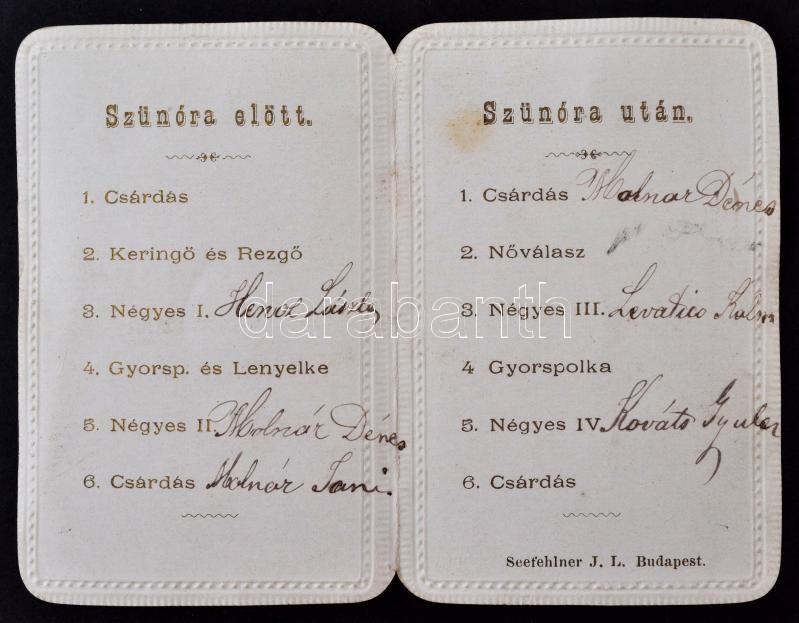 Szünóra elött.
1. Csárdás
2. Keringö és Rezgő
3. Négyes I. Hencz László
4. Gyorsp. és Lenyelke
5. Négyes II. Molnár Dénes
6. Csárdás Molnár Jani.
Szünóra után.
1. Csárdás Molnar Dénes
2. Nőválasz
3. Négyes III. Levatics Kálm
4 Gyorspolka
5. Négyes IV. Kováts Gyula
6. Csárdás
Seefehlner J. L. Budapest.
darabanth